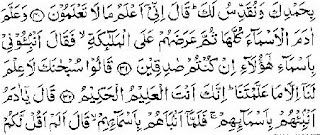 بِحَمْدِكَ وَنُقَدِّسُ لَكَ ؕ قَالَ اِنِّىْۤ اَعْلَمُ مَا لَا تَعْلَمُوْنَ ﴿۳۰﴾ وَعَلَّمَ
اٰدَمَ الْاَسْمَآءَ كُلَّهَا ثُمَّ عَرَضَهُمْ عَلَى الْمَلٰٓئِكَةِ ۙ فَقَالَ اَنْۢبِـُٔوْنِىْ
بِاَسْمَآءِ هٰٓؤُلَآءِ اِنْ كُنْتُمْ صٰدِقِيْنَ ﴿۳۱﴾ قَالُوْا سُبْحٰنَكَ لَا عِلْمَ
لَنَآ اِلَّا مَا عَلَّمْتَنَا ؕ اِنَّكَ اَنْتَ الْعَلِيْمُ الْحَكِيْمُ ﴿۳۲﴾ قَالَ يٰٓاٰدَمُ
اَنْۢبِئْهُمْ بِاَسْمَآئِهِمْ ۚ فَلَمَّآ اَنْۢبَاَهُمْ بِاَسْمَآئِهِمْ ۙ قَالَ اَلَمْ اَقُلْ لَّكُمْ